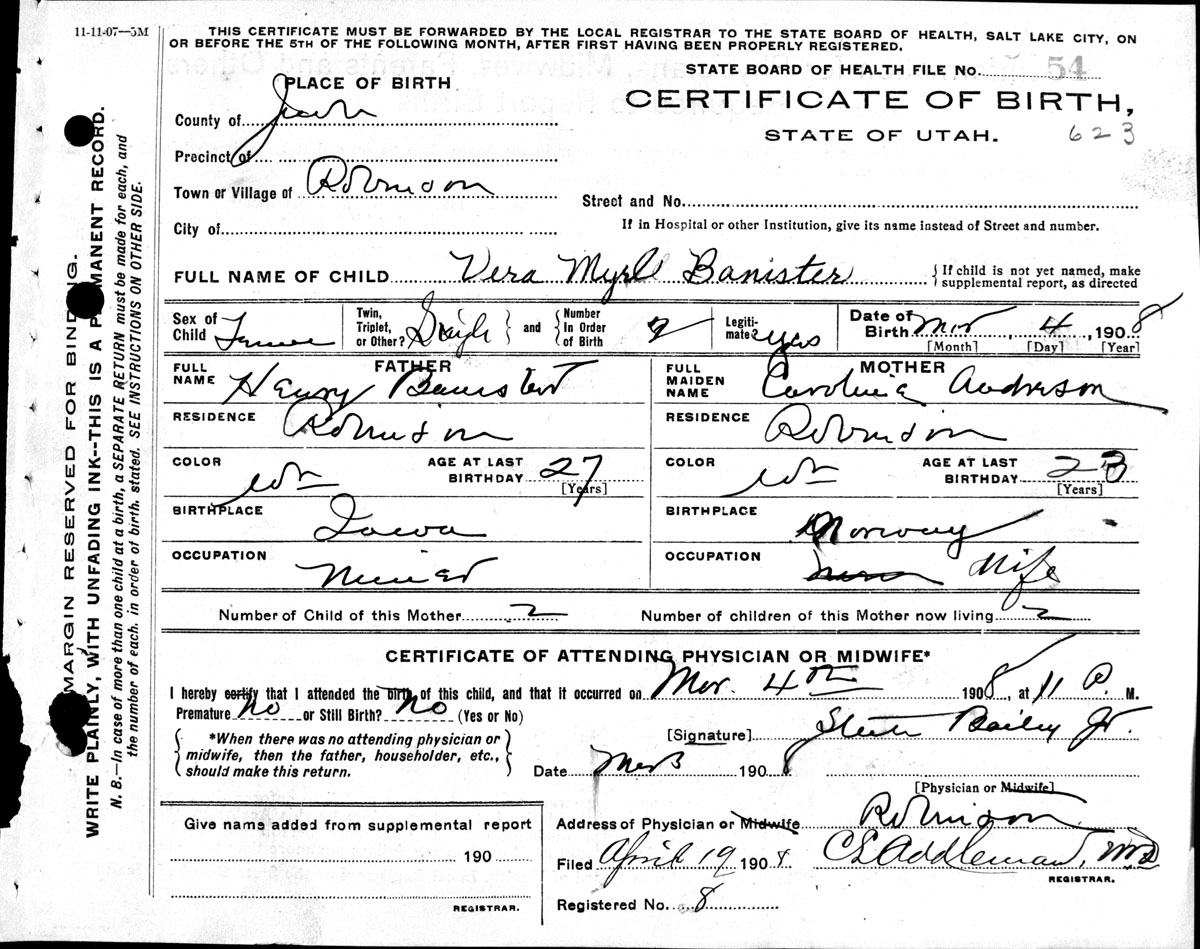 11-11-07—5M
THIS CERTIFICATE MUST BE FORWARDED BY THE LOCAL REGISTRAR TO THE STATE BOARD OF HEALTH, SALT LAKE CITY, ON
OR BEFORE THE 5TH OF THE FOLLOWING MONTH, AFTER FIRST HAVING BEEN PROPERLY REGISTERED.
STATE BOARD OF HEALTH FILE No. 54
PLACE OF BIRTH
CERTIFICATE OF BIRTH,
STATE OF UTAH. 623
County of Juab
Precinct of
Town or Village of Robinson
Street and No.
If in Hospital or other Institution, give its name instead of Street and number.
City of
FULL NAME OF CHILD Vera Myrl Banister { If child is not yet named, make
supplemental report, as directed
Sex of Child Female Twin, Triplet, or Other? Single } and { Number In Order of Birth 2 Legiti-mate? Yes Date of Birth Mar 4 1908
[Month] [Day] [Year]
FATHER
FULL NAME Henry Banister
MOTHER
FULL MAIDEN NAME Caroline Anderson
RESIDENCE Robinson
RESIDENCE Robinson
COLOR Wh AGE AT LAST BIRTHDAY 27 [Years]
COLOR Wh AGE AT LAST BIRTHDAY 23 [Years]
BIRTHPLACE Iowa
BIRTHPLACE Norway
OCCUPATION Miner
OCCUPATION Wife
Number of Child of this Mother 2 Number of children of this Mother now living 2
CERTIFICATE OF ATTENDING PHYSICIAN OR MIDWIFE*
I hereby certify that I attended the birth of this child, and that it occurred on Mar. 4th 1908, at 11 P. M.
Premature No or Still Birth? No (Yes or No)
*When there was no attending physician or
midwife, then the father, householder, etc.,
should make this return.
[Signature] Steele Bailey Jr.
Date 1908
[Physician or Midwife]
Give name added from supplemental report
190
REGISTRAR.
Address of Physician or Midwife Robinson
Filed April 19 190
C E Addleman, MD
REGISTRAR.
Registered No. 8
MARGIN RESERVED FOR BINDING.
WRITE PLAINLY, WITH UNFADING INK--THIS IS A PERMANENT RECORD.
N. B.—In case of more than one child at a birth, a SEPARATE RETURN must be made for each, and
the number of each. in order of birth. stated. SEE INSTRUCTIONS ON OTHER SIDE.